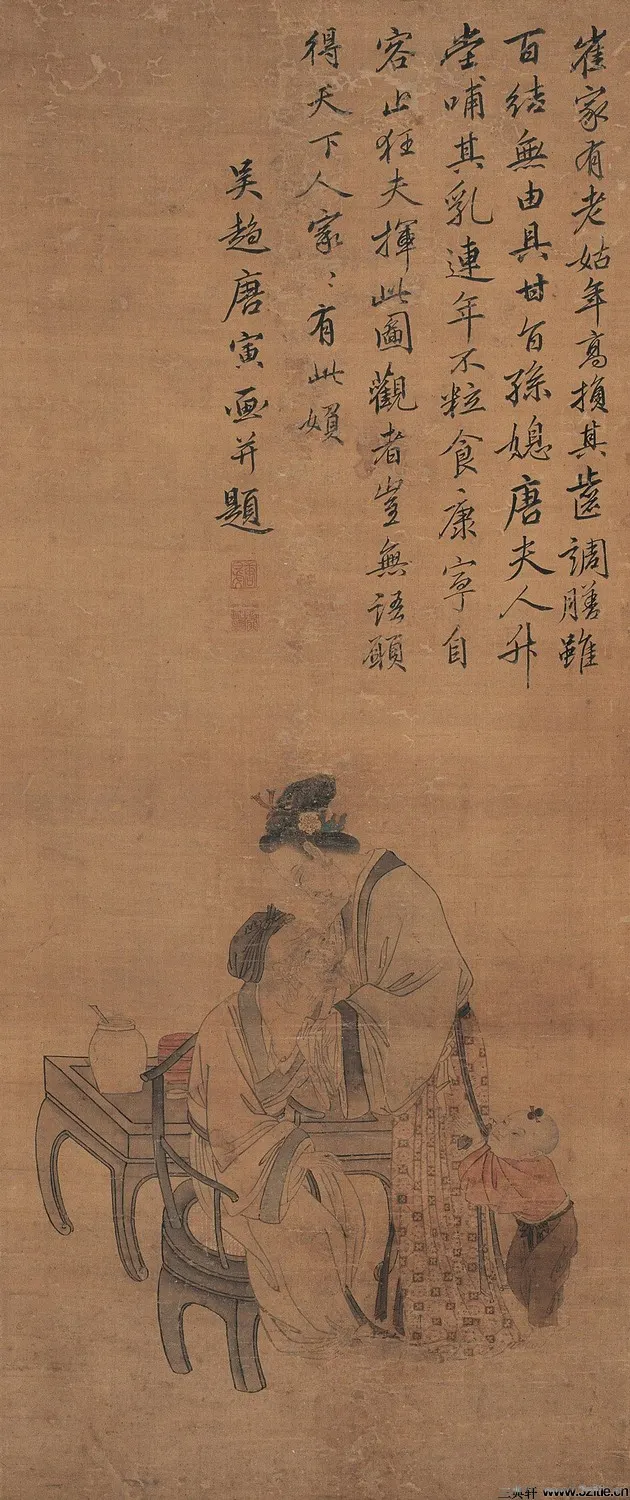 崔家有老姑年高損其齒調膳雖
百結無由具甘旨孫媳唐夫人升
堂哺其乳連年不粒食〻康寧自
容止狂夫揮此圖觀者豈無語願
得天下人家〻有此媍
吳趨唐寅画并題
www.52itie.cn